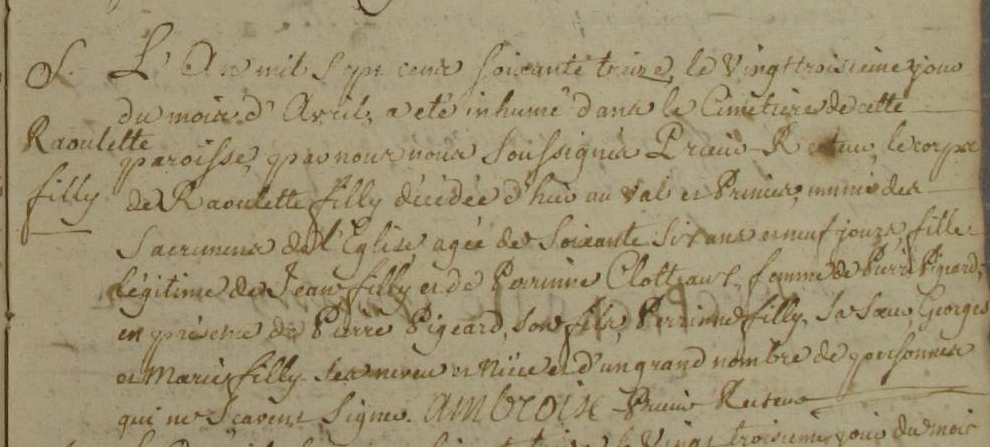 S.
Raoulette
filly
L'An mil Sept cent Soixante treize, le Vingt troisieme jour
du mois d'Avril, a été inhumé dans le Cimetiere de cette
paroisse, par nous nous Soussignés Prieur Recteur, le corps
de Raoulette filly décédée d'hier au Val es Prunier, munie des
Sacrements de l'Eglise, agée de Soixante Six ans et neuf jours, fille
légitime de Jean filly et de Perrinne Clolteaux, femme de Pierre Pigeard,
en présence de Pierre Pigeard, Son fils, Perrinne filly, Sa Sœur, Georges
et Marie filly Ses neveu et Niéce et d'un grand nombre de personnes
qui ne Scavent Signer. AMBROISE Prieur Recteur
le Vingt troisieme jour du mois